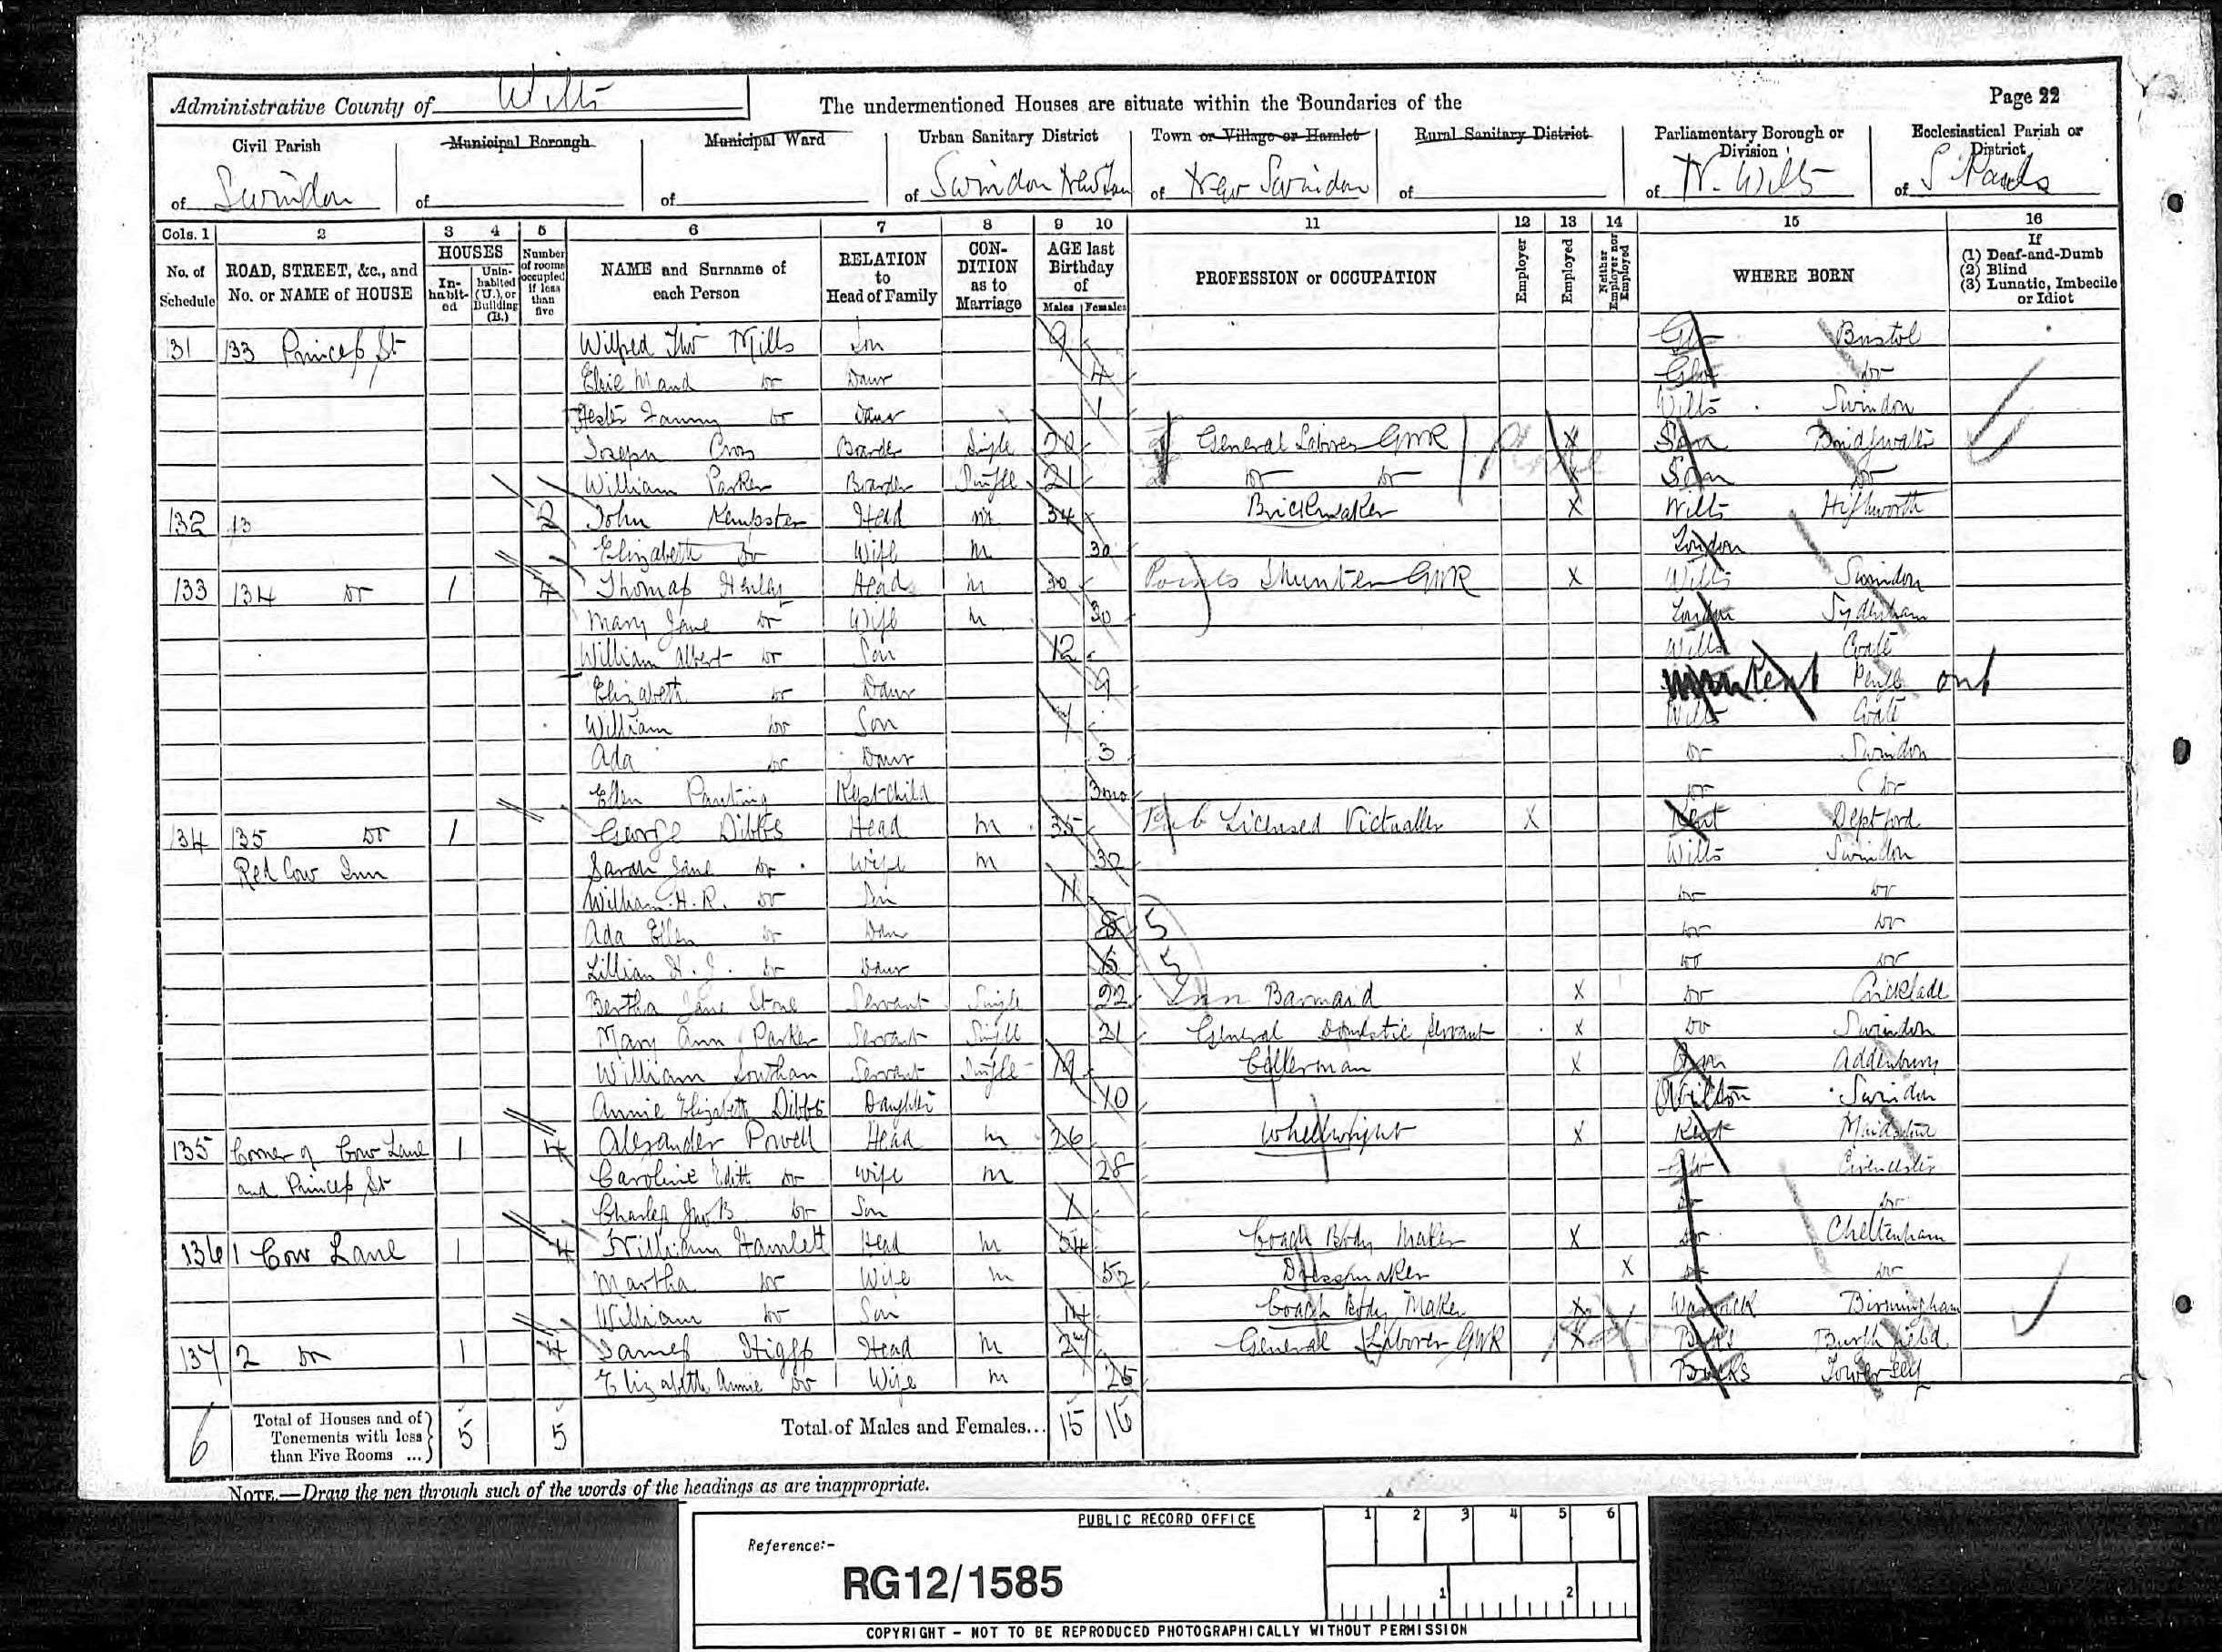 Administrative County of Wilts
The undermentioned Houses are situate within the Boundaries of the
Page 22
Civil Parish
of Swindon
Municipal Borough
of
Municipal Ward
of
Urban Sanitary District
of Swindon New Town
Town or Village or Hamlet
of New Swindon
Rural Sanitary District
of
Parliamentary Borough or Division
of N. Wilts
Ecclesiastical Parish or District
of S Pauls
Cols. 1 2 3 4 5 6 7 8 9 10 11 12 13 14 15 16
No. of Schedule
ROAD, STREET, &c., and No. or NAME of HOUSE
HOUSES
Inhabited
Uninhabited (U.), or Building (B.)
Number of rooms occupied if less than five
NAME and Surname of each Person
RELATION to Head of Family
CONDITION as to Marriage
AGE last Birthday of
Males Females
PROFESSION or OCCUPATION
Employer
Employed
Neither Employer nor Employed
WHERE BORN
If
(1) Deaf-and-Dumb
(2) Blind
(3) Lunatic, Imbecile or Idiot
131 133 Princes St Wilfred Thos Mills Son 9 Glo Bristol
Elsie Maud do Daur 4 Glo do
Hester Fanny do Daur 1 Wilts Swindon
Joseph Cross Boarder Single 20 General Laborer GWR X Som Bridgwater
William Parker Boarder Single 21 do do X Som do
132 13 2 John Kempster Head M 34 Brickmaker X Wilts Highworth
Elizabeth do Wife M 30 London
133 134 do 1 4 Thomas Henley Head M 30 Points Shunter GWR X Wilts Swindon
Mary Jane do Wife M 30 London Sydenham
William Albert do Son 12 Wilts Coate
Elizabeth do Daur 9 Kent Penge
William do Son 7 Wilts Coate
Ada do Daur 3 do Swindon
Ellen Panting Kept Child 3 mo do do
134 135 do 1 George Dibbs Head M 35 Pub Licensed Victualler X Kent Deptford
Red Cow Inn Sarah Jane do Wife M 32 Wilts Swindon
William H. R. do Son 11 do do
Ada Ellen do Daur 8 5 do do
Lillian H. J. do Daur 6 5 do do
Bertha Jane Stone Servant Single 22 Inn Barmaid X do Cricklade
Mary Ann Parker Servant Single 21 General Domestic Servant X do Swindon
William Servant Single 19 Cellerman X Oxon Adderbury
Annie Elizabeth Dibbs Daughter 10 Swindon
135 Corner of Cow Lane 1 4 Alexander Powell Head M 26 Wheelwright X Kent Maidstone
and Princes St Caroline Edith do Wife M 28 Glo Cirencester
Charles Jno B. do Son 1 do do
136 1 Cow Lane 1 4 William Hamlett Head M 54 Coach Body Maker X do Cheltenham
Martha do Wife M 52 Dressmaker X do do
William do Son 14 Coach Body Maker X Warwick Birmingham
137 2 do 1 4 James Higgs Head M 27 General Laborer GWR X
Elizabeth Annie do Wife M 25 Bucks Towersey
6
Total of Houses and of Tenements with less than Five Rooms ... 5 5
Total of Males and Females... 15 16
NOTE.—Draw the pen through such of the words of the headings as are inappropriate.
PUBLIC RECORD OFFICE
Reference:-
RG12/1585
1 2 3 4 5 6
1 2
COPYRIGHT - NOT TO BE REPRODUCED PHOTOGRAPHICALLY WITHOUT PERMISSION